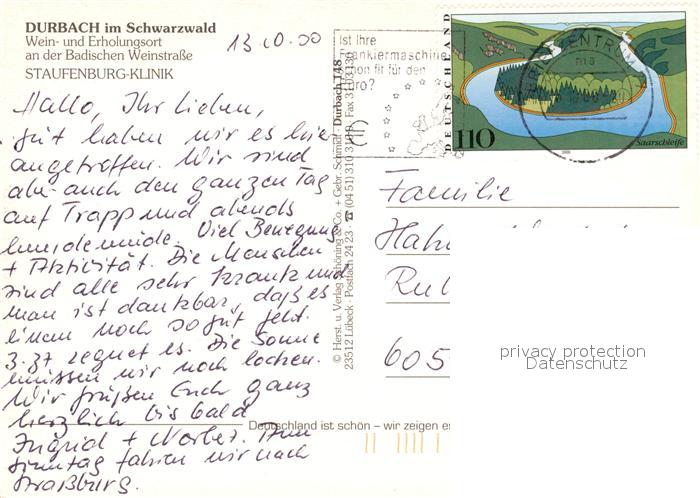 DURBACH im Schwarzwald
Wein- und Erholungsort
an der Badischen Weinstraße
STAUFENBURG-KLINIK
13.10.00
Hallo, Ihr Lieben,
gut haben wir es hier
angetroffen. Wir sind
aber auch den ganzen Tag
auf Trapp und abends
hundemüde. Viel Bewegung
+ Aktivität. Die Menschen
sind alle sehr krank und
man ist dankbar, daß es
einem noch so gut geht.
Die Sonne
regnet es.
müssen wir noch locken.
Wir grüßen Euch ganz
herzlich bis bald
Ingrid + Norbert. Am
Sonntag fahren wir nach
Straßburg.
© Herst. u. Verlag Schöning & Co. + Gebr. Schmidt · Durbach 148
23512 Lübeck · Postfach 24 23 · ☎ (04 51) 310 31 0 · Fax 31 03 130
Ist Ihre
Frankiermaschine
schon fit für den
Euro?
DEUTSCHLAND
110
Saarschleife
2000
BRIEFZENTRUM
Familie
Hah
Ru
605
privacy protection
Datenschutz
Deutschland ist schön – wir zeigen es